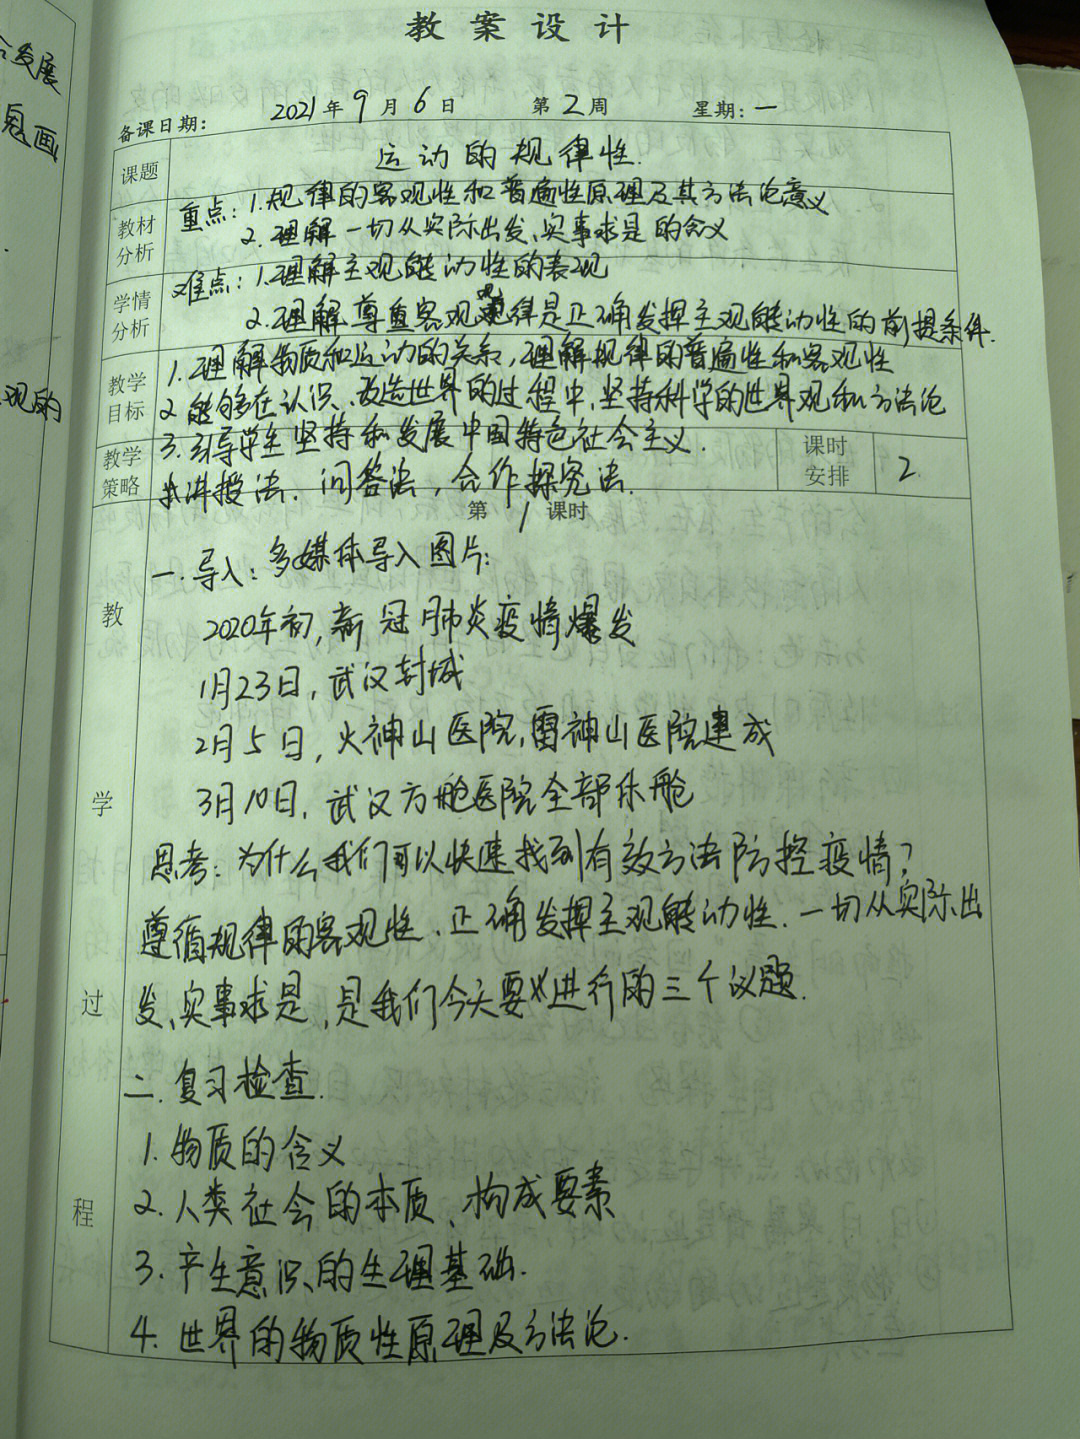 合发展
思画
观的
教案设计
备课日期： 2021年9月6日 第2周 星期：一
课题 运动的规律性.
教材分析 重点：1.规律的客观性和普遍性原理及其方法论意义
2.理解一切从实际出发、实事求是的含义
学情分析 难点：1.理解主观能动性的表现
2.理解尊重客观规律是正确发挥主观能动性的前提条件.
教学目标 1.理解物质和运动的关系，理解规律的普遍性和客观性
2.能够在认识、改造世界的过程中，坚持科学的世界观和方法论
3.引导学生坚持和发展中国特色社会主义.
教学策略 讲授法、问答法，合作探究法. 课时安排 2.
第 1 课时
教学过程
一.导入：多媒体导入图片：
2020年初，新冠肺炎疫情爆发
1月23日，武汉封城
2月5日，火神山医院，雷神山医院建成
3月10日，武汉方舱医院全部休舱
思考：为什么我们可以快速找到有效方法防控疫情？
遵循规律的客观性、正确发挥主观能动性、一切从实际出
发、实事求是，是我们今天要进行的三个议题.
二.复习检查.
1.物质的含义
2.人类社会的本质、构成要素
3.产生意识的生理基础.
4.世界的物质性原理及方法论.